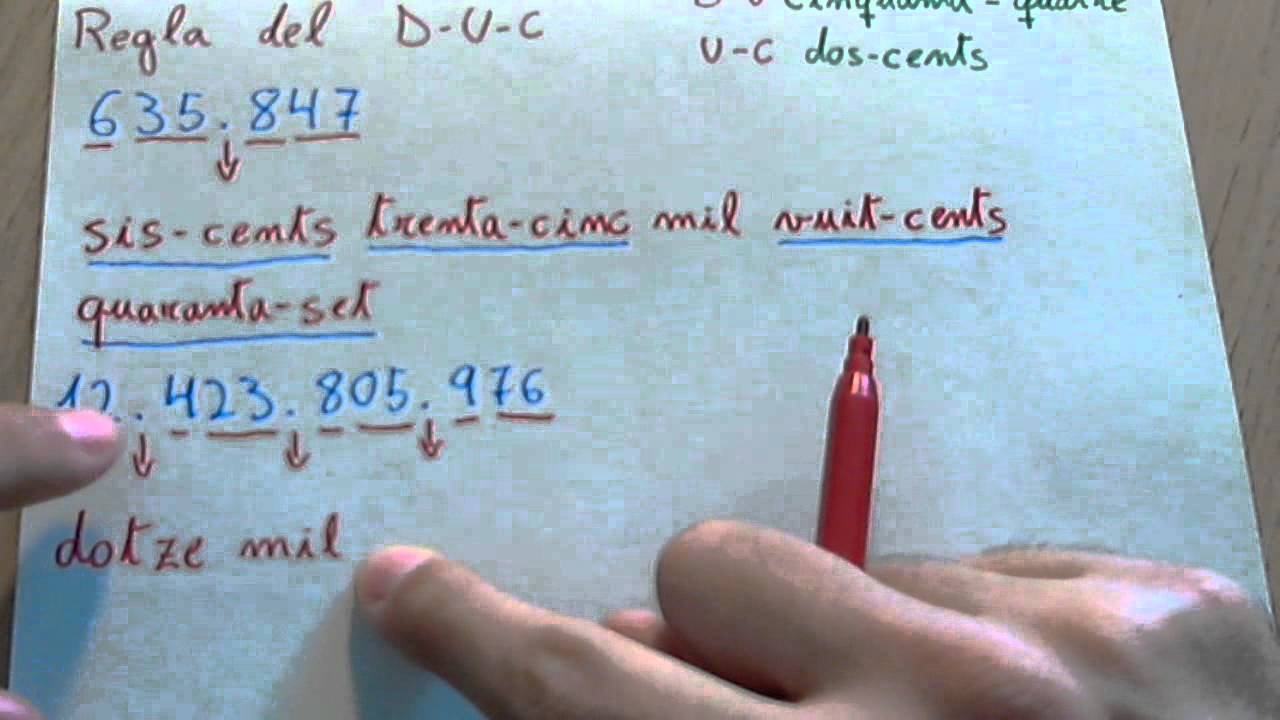 Regla del D-U-C
U-C dos-cents
635.847
sis-cents trenta-cinc mil vuit-cents
quaranta-set
12.423.805.976
dotze mil